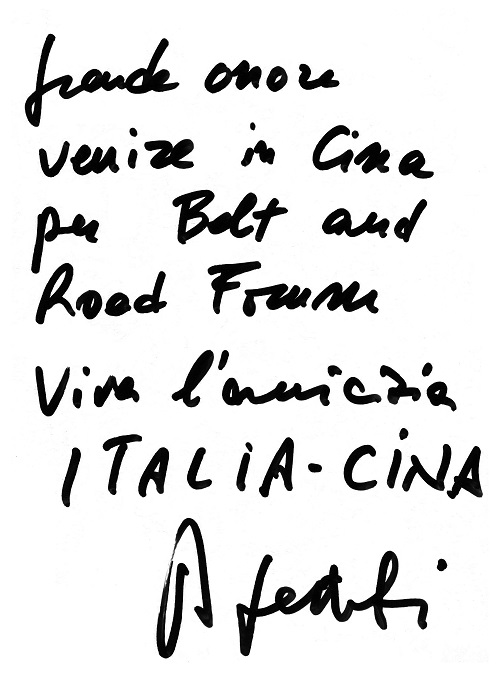 grande onore
venire in Cina
per Belt and
Road Forum
Viva l'amicizia
ITALIA-CINA